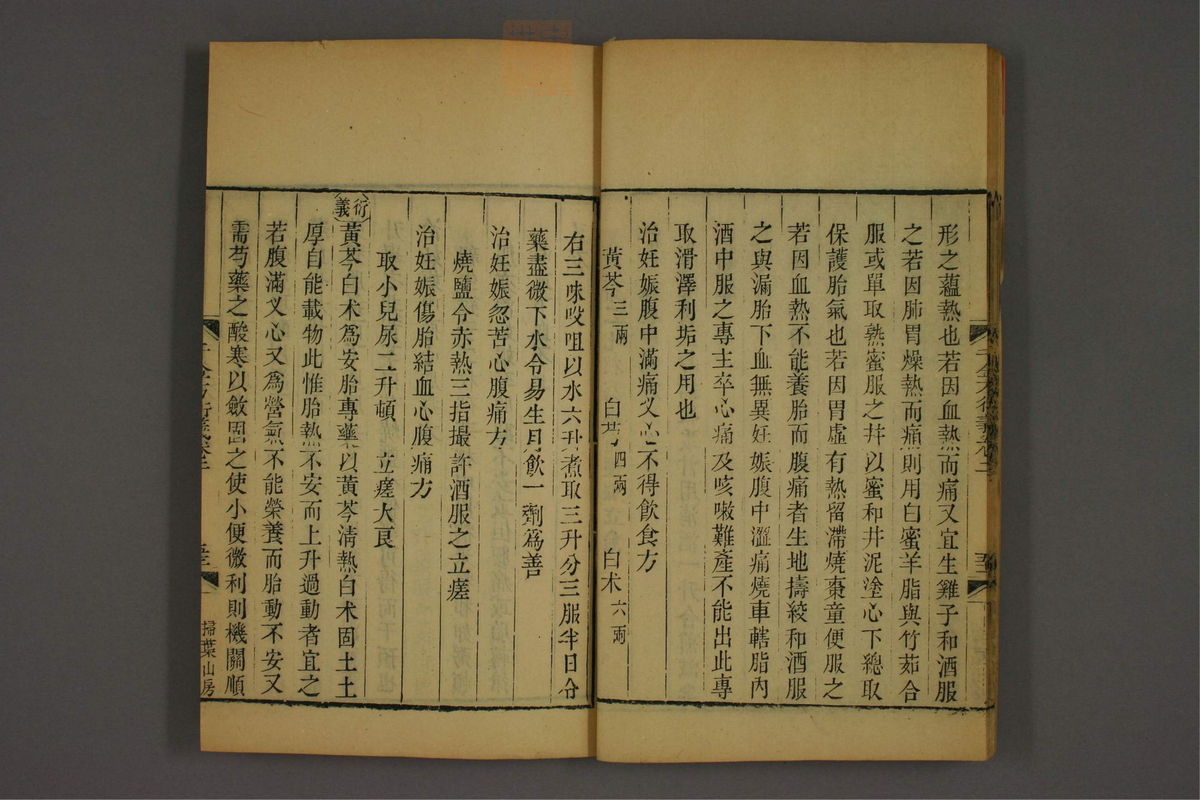 形之蘊熱也若因血熱而痛又宜生雞子和酒服
之若因肺胃燥熱而痛則用白蜜羊脂與竹茹合
服或單取熟蜜服之幷以蜜和井泥塗心下總取
保護胎氣也若因胃虛有熱留滯燒棗童便服之
若因血熱不能養胎而腹痛者生地擣絞和酒服
之與漏胎下血無異妊娠腹中滿痛燒車轄脂內
酒中服之專主卒心痛及咳嗽難產不能出此專
取滑澤利垢之用也
治妊娠腹中滿痛义心不得飲食方
黃芩三兩 白芍四兩 白朮六兩
右三味㕮咀以水六升煮取三升分三服半日令
藥盡微下水令易生月飲一劑爲善
治妊娠忽苦心腹痛方
燒鹽令赤熱三指撮許酒服之立瘥
治妊娠傷胎結血心腹痛方
取小兒尿二升頓立瘥大良
衍義
黃芩白朮爲安胎專藥以黃芩清熱白朮固土土
厚自能載物此惟胎熱不安而上升過動者宜之
若腹滿义心又爲營氣不能榮養而胎動不安又
需芍藥之酸寒以斂固之使小便微利則機關順
千金方衍義卷二
掃葉山房